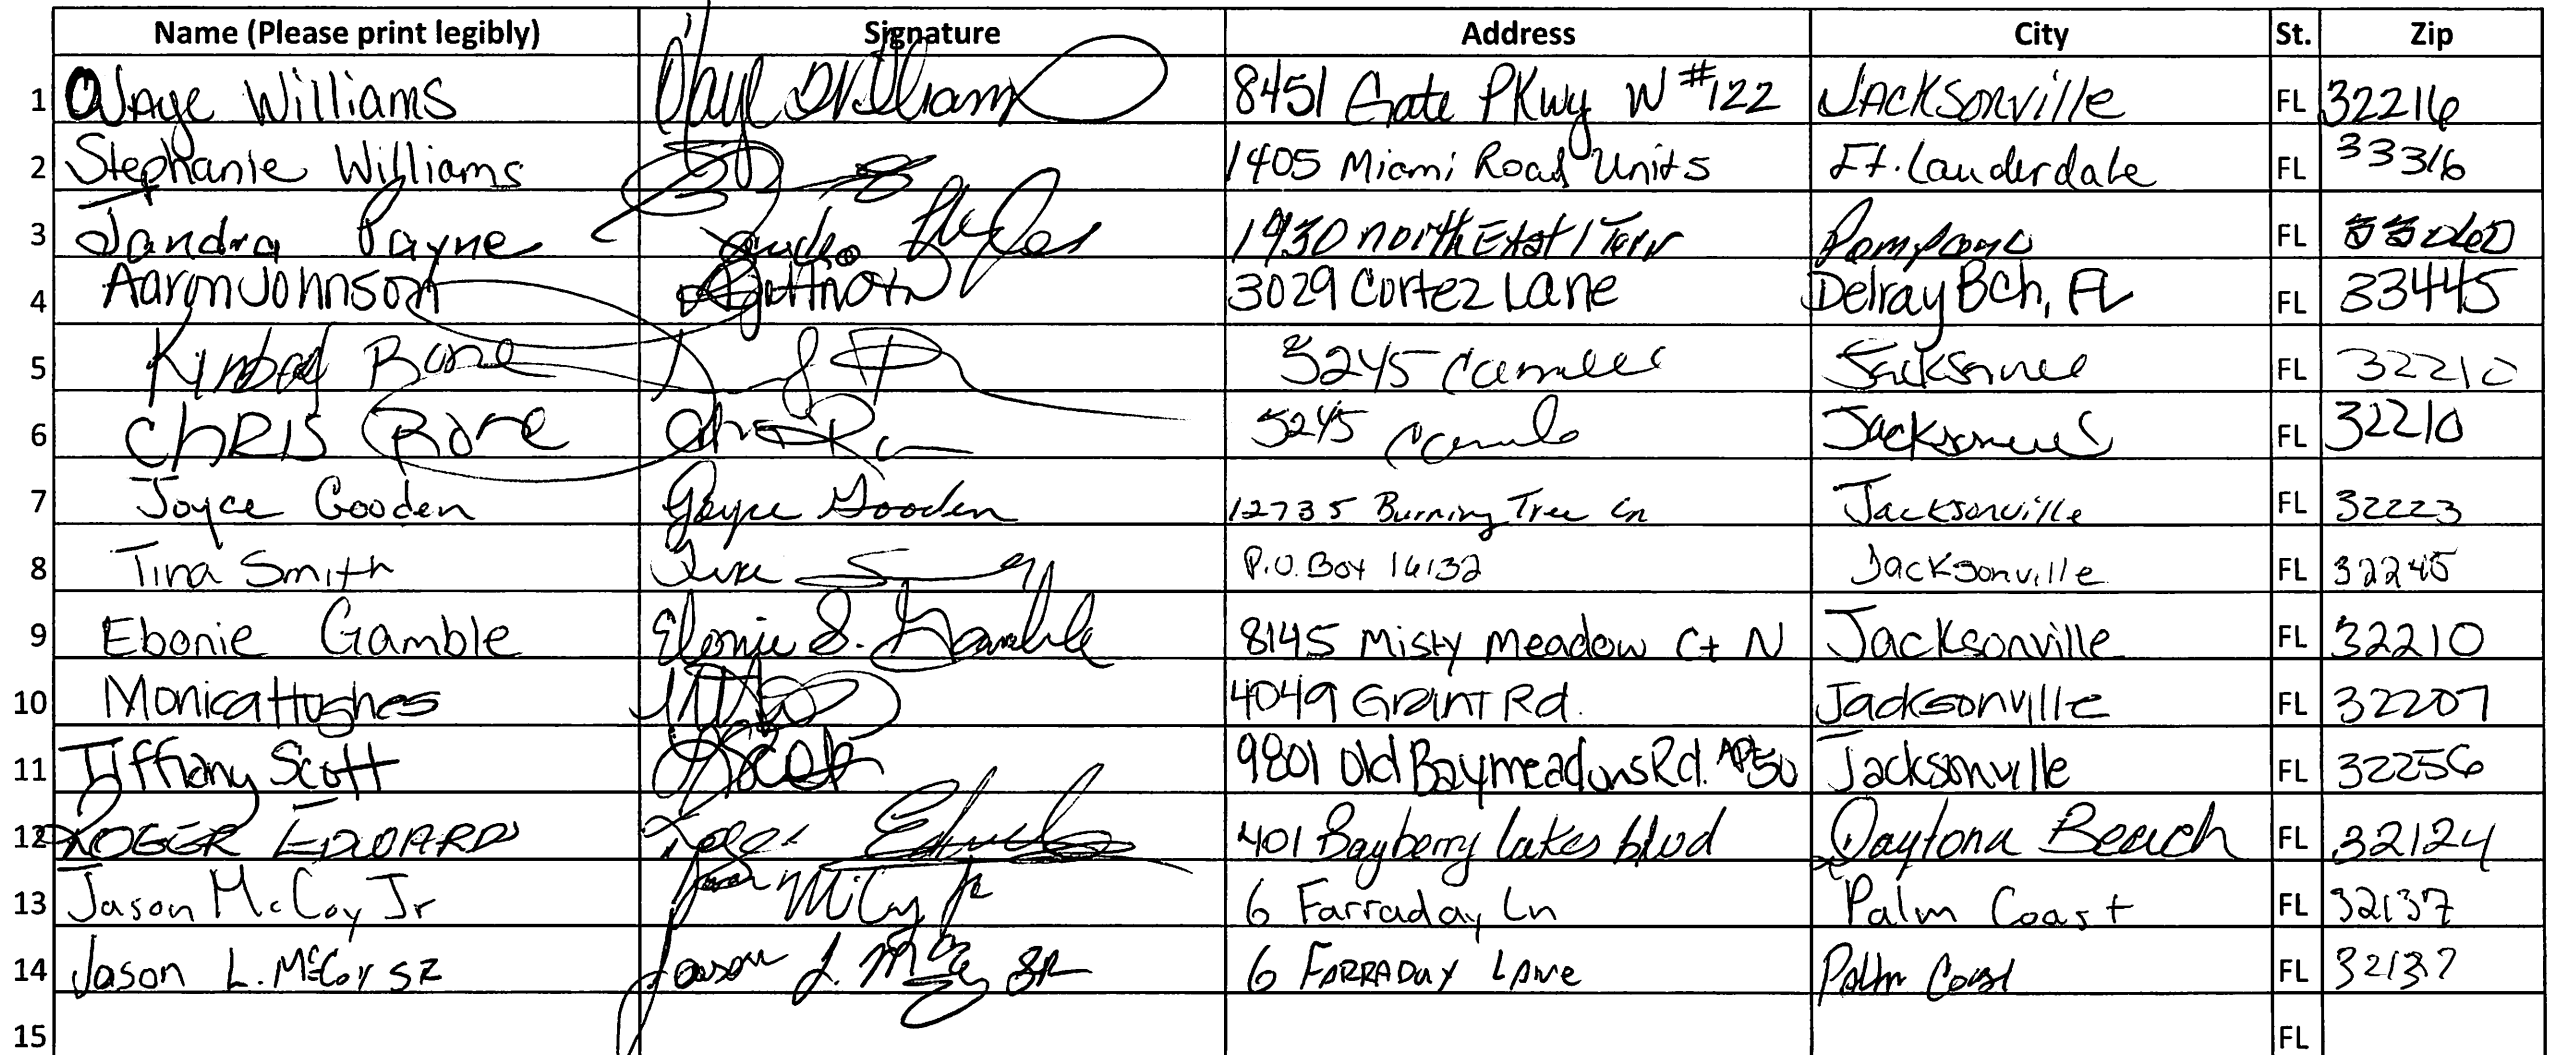 Name (Please print legibly) Signature Address City St. Zip
1 Waye Williams 8451 Gate PKwy W #122 Jacksonville FL 32216
2 Stephanie Williams 1405 Miami Road Unit 5 Ft. Lauderdale FL 33316
3 Sandra Payne 1930 north East 1 Terr Pompano FL
4 Aaron Johnson 3029 Cortez Lane Delray Bch, FL FL 33445
5 5245 FL 32210
6 ChRIS 5245 FL 32210
7 Joyce Gooden Joyce Gooden 12735 Burning Tree Ln Jacksonville FL 32223
8 Tina Smith P.O. Box 16132 Jacksonville FL 32245
9 Ebonie Gamble Ebonie S. Gamble 8145 Misty Meadow Ct N Jacksonville FL 32210
10 Monica Hughes 4049 Grant Rd. Jacksonville FL 32207
11 Tiffiany Scott Scott 9801 Old Baymeadows Rd. AP50 Jacksonville FL 32256
12 ROGER EDWARD 401 Bayberry lakes blvd Daytona Beach FL 32124
13 Jason McCoy Jr Jason McCoy Jr 6 Farraday Ln Palm Coast FL 32137
14 Jason L. McCoy SR Jason L. McCoy SR 6 FARRADAY LANE Palm Coast FL 32137
15 FL